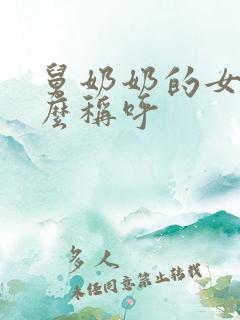 舅奶奶的女
麽稱呼
多人
未经同意禁止转载